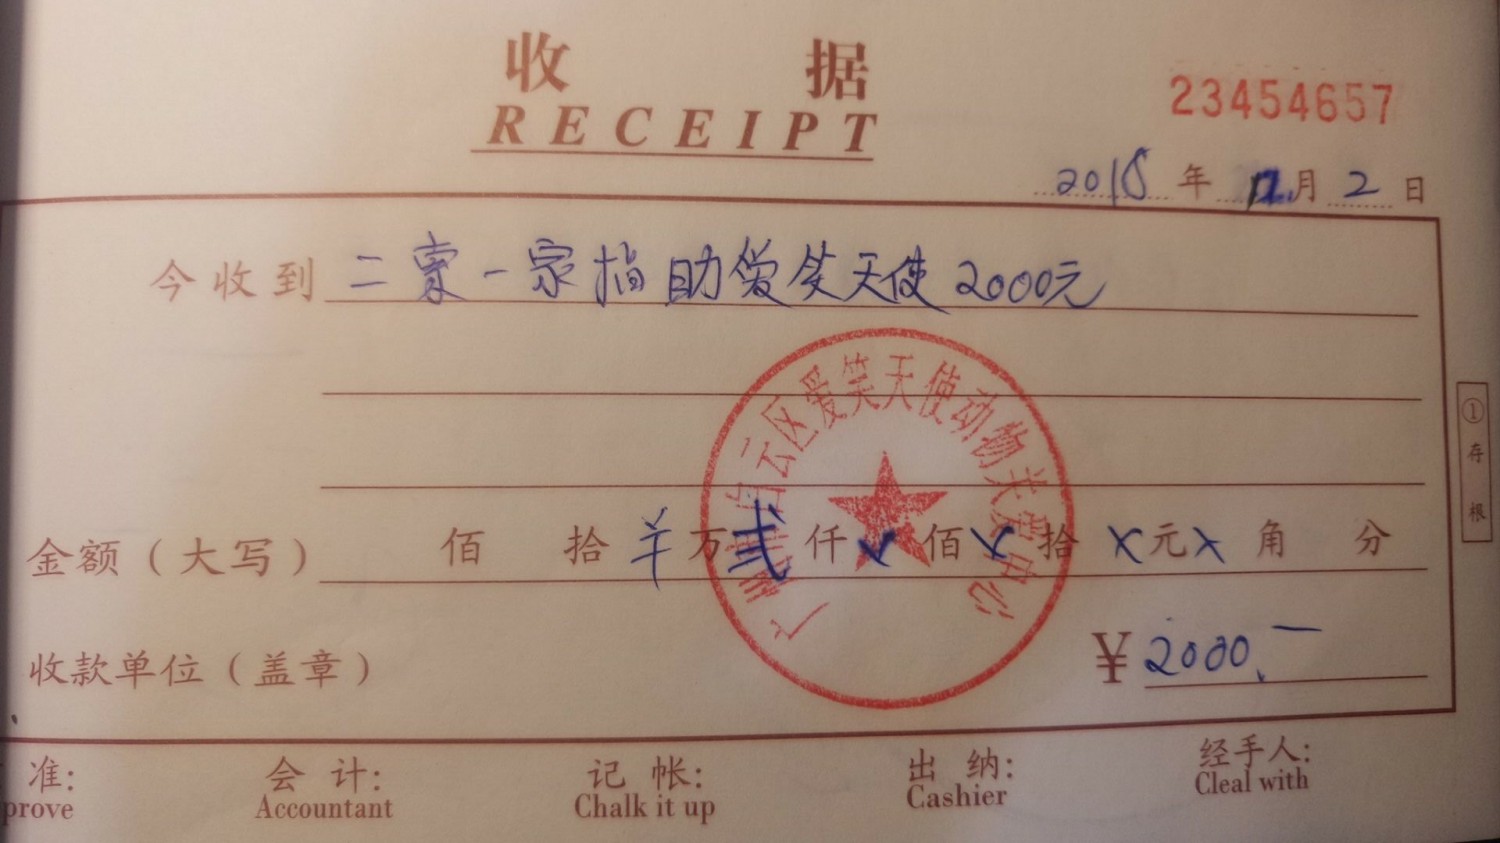 收 据
RECEIPT
23454657
2018 年 12 月 2 日
今收到 二 一家捐助爱笑天使2000元
广州市白云区爱笑天使动物关爱中心
① 存根
金额（大写） 佰 拾 万 贰 仟 佰 X 拾 X 元 X 角 分
收款单位（盖章） ¥ 2000.—
准: 会 计: 记 帐: 出 纳: 经手人:
prove Accountant Chalk it up Cashier Cleal with